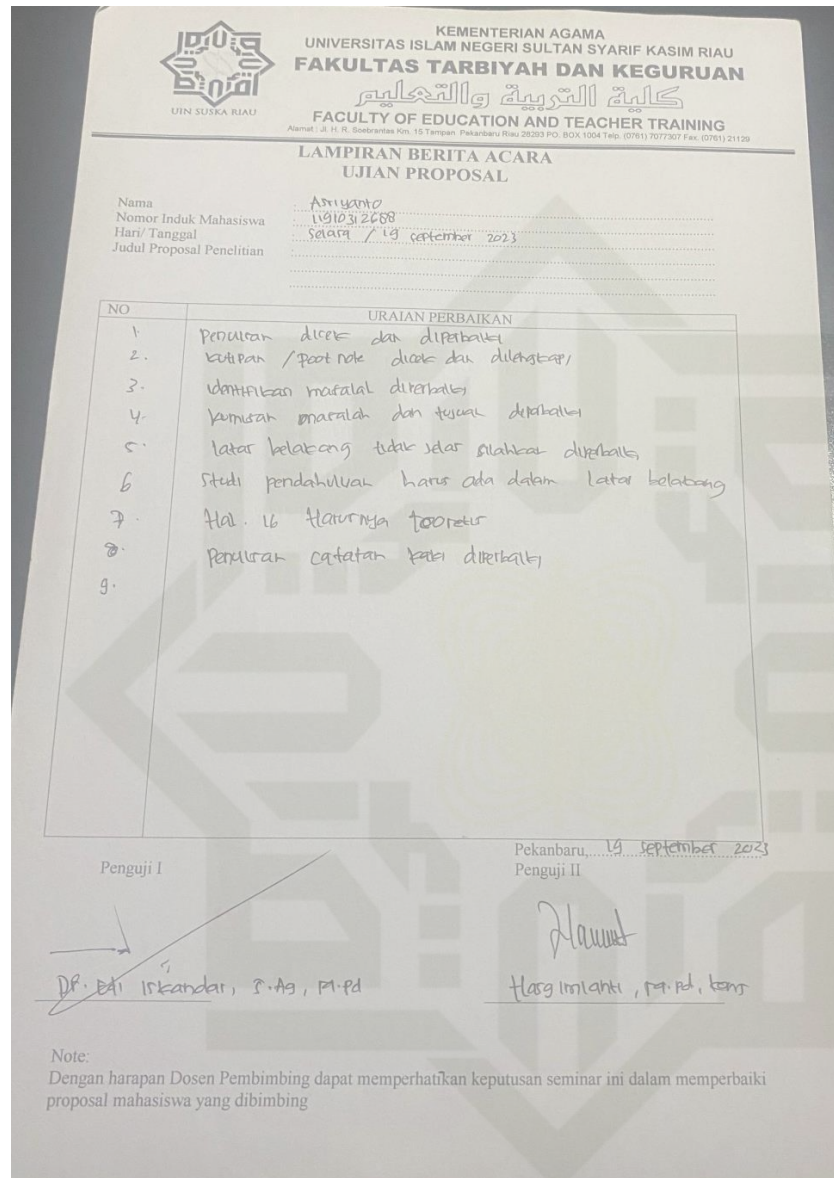 UIN SUSKA RIAU
KEMENTERIAN AGAMA
UNIVERSITAS ISLAM NEGERI SULTAN SYARIF KASIM RIAU
FAKULTAS TARBIYAH DAN KEGURUAN
كلية التربية والتعليم
FACULTY OF EDUCATION AND TEACHER TRAINING
Alamat : Jl. H. R. Soebrantas Km. 15 Tampan Pekanbaru Riau 28293 PO. BOX 1004 Telp. (0761) 7077307 Fax. (0761) 21129
LAMPIRAN BERITA ACARA
UJIAN PROPOSAL
Nama : Asriyanto
Nomor Induk Mahasiswa : 11910312688
Hari/ Tanggal : Selasa / 19 september 2023
Judul Proposal Penelitian :
NO URAIAN PERBAIKAN
1. Penulisan dicek dan diperbaiki
2. kutipan / foot note dicek dan dilengkapi
3. identifikasi masalah diperbaiki
4. Rumusan masalah dan tujuan diperbaiki
5. latar belakang tidak jelas silahkan diperbaiki
6 Studi pendahuluan harus ada dalam latar belakang
7. Hal. 16 Harusnya teoretis
8. Penulisan catatan kaki diperbaiki
9.
Pekanbaru, 19 september 2023
Penguji I Penguji II
Dr. Edi Iskandar, S.Ag, M.Pd
, M.Pd, kons
Note:
Dengan harapan Dosen Pembimbing dapat memperhatikan keputusan seminar ini dalam memperbaiki
proposal mahasiswa yang dibimbing